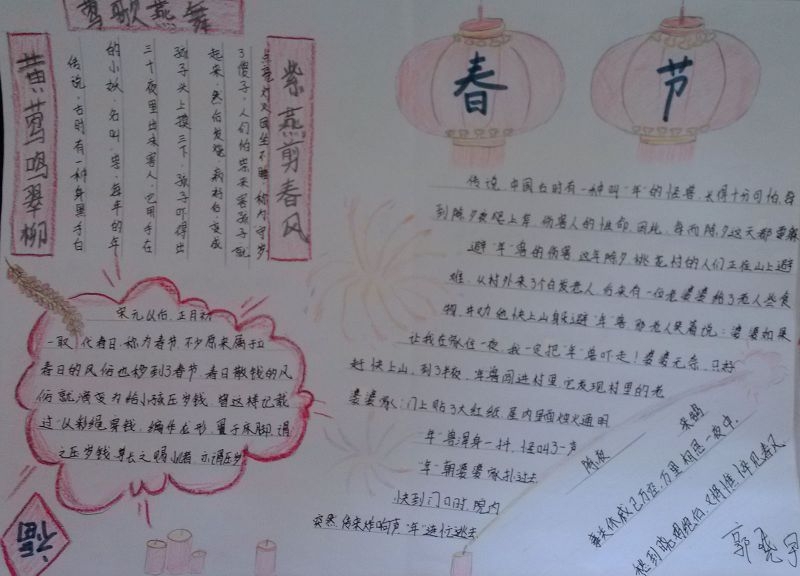 莺歌燕舞
黄莺鸣翠柳
紫燕剪春风
传说，古时有一种身黑手白
的小妖，名叫"祟"，每年的年
三十夜里出来害人，它用手在
孩子头上摸三下，孩子吓得
起来，然后发烧
了傻子，人们怕祟来害孩子，就
点亮灯火团坐不睡，称为"守岁"
春节
传说，中国古时有一种叫"年"的怪兽，长得十分可怕，每
到除夕夜爬上岸，伤害人的性命，因此，每到除夕这天都要
避"年"兽的伤害，这年除夕，桃花村的人们正在山上避
难，从村外来了个白发老人，后来有一位老婆婆给了老人些食
物，并劝他快上山躲避"年"兽，那老人笑着说：婆婆如果
让我在家住一夜，我一定把"年"兽吓走！婆婆无奈，只好
赶快上山，到了半夜，年兽闯进村里，它发现村里的老
婆婆家：门上贴了大红纸，屋内里面烛火通明
"年"兽浑身一抖，怪叫了一声
"年"朝婆婆家扑过去
快到门口时，院内
突然传来炸响声，"年"
宋元以后，正月初
一取代春日，称为春节，不少原来属于立
春日的风俗也移到了春节，春日散钱的风
俗就演变为给小孩压岁钱，曾这样记载
过："以彩绳穿钱，编作龙形，置于床脚，谓
之压岁钱，尊长之赐小儿者，亦谓压岁
福
除夜
事关休戚已万
万里相思一夜中